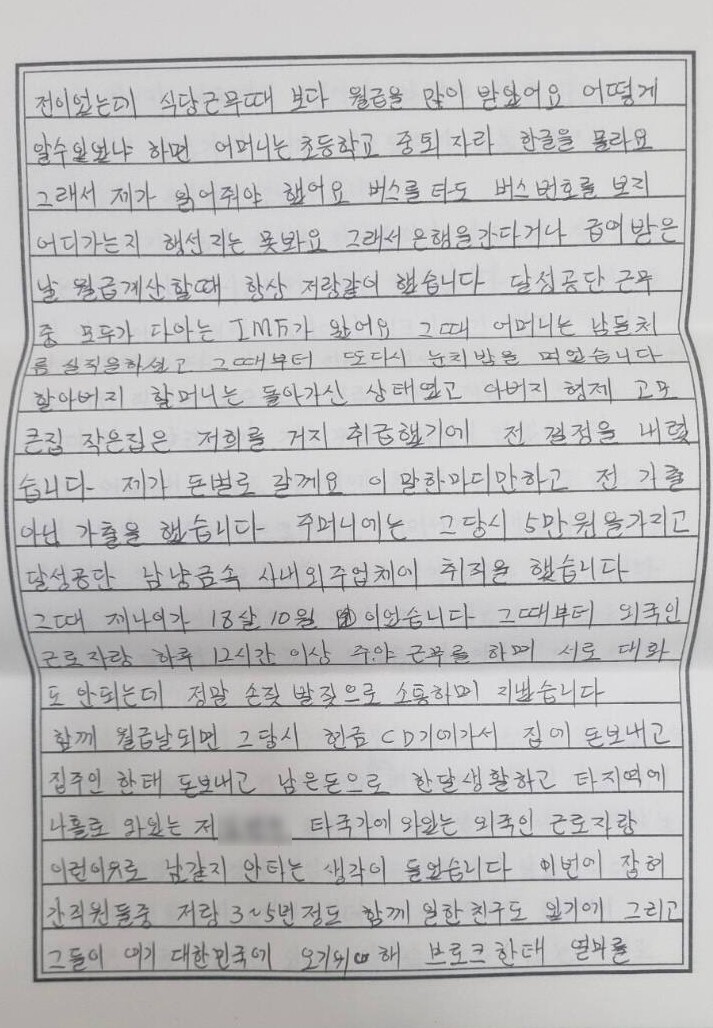 전이었는데 식당근무때 보다 월급을 많이 받았어요 어떻게
알수있었냐 하면 어머니는 초등학교 중퇴 자라 한글을 몰라요
그래서 제가 읽어줘야 했어요 버스를 타도 버스번호를 보지
어디가는지 행선지는 못봐요 그래서 은행을간다거나 급여 받은
날 월급계산할때 항상 저랑같이 했습니다 달성공단 근무
중 모두가 다아는 IMF가 왔어요 그때 어머니는 남들처
름 실직을하셨고 그때부터 또다시 눈치밥을 먹었습니다
할아버지 할머니는 돌아가신 상태였고 아버지 형제 고모
큰집 작은집은 저희를 거지 취급했기에 전 결정을 내렸
습니다 제가 돈벌로 갈께요 이 말한마디만하고 전 가출
아닌 가출을 했습니다 주머니에는 그당시 5만원을가지고
달성공단 남냥금속 사내외주업체에 취직을 했습니다
그때 제나이가 18살 10월 이었습니다 그때부터 외국인
근로자랑 하루 12시간 이상 주.야 근무를 하며 서로 대화
도 안되는데 정말 손짓 발짓으로 소통하며 지냈습니다
함께 월급날되면 그당시 현금 CD기에가서 집에 돈보내고
집주인 한태 돈보내고 남은돈으로 한달생활하고 타지역에
나홀로 와있는 저 타국가에와있는 외국인 근로자랑
이런이유로 남같지 안타는 생각이 들었습니다 이번에 잡혀
간직원들중 저랑 3~5번 정도 함께 일한친구도 있기에 그리고
그들이 여기 대한민국에 오기위해 브로크한태 얼마를